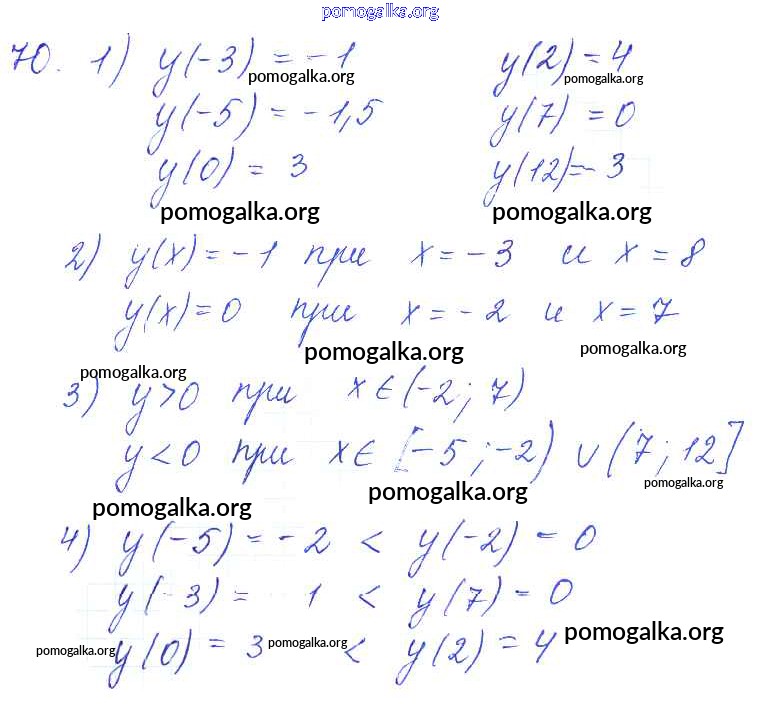 pomogalka.org
70. 1) y(-3) = -1 y(2) = 4
pomogalka.org pomogalka.org
y(-5) = -1,5 y(7) = 0
y(0) = 3 y(12) = -3
pomogalka.org pomogalka.org
2) y(x) = -1 при x = -3 и x = 8
y(x) = 0 при x = -2 и x = 7
pomogalka.org pomogalka.org
pomogalka.org
3) y > 0 при x ∈ (-2; 7)
y < 0 при x ∈ [-5; -2) ∪ (7; 12]
pomogalka.org pomogalka.org pomogalka.org
4) y(-5) = -2 < y(-2) = 0
y(-3) = -1 < y(7) = 0
pomogalka.org y(0) = 3 pomogalka.org < y(2) = 4 pomogalka.org